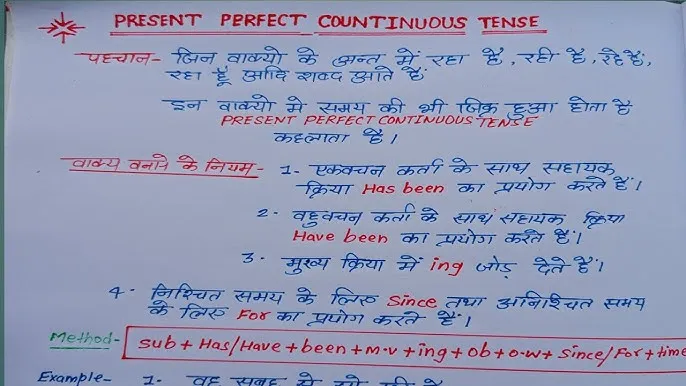 PRESENT PERFECT COUNTINUOUS TENSE
पहचान- जिन वाक्यो के अन्त में रहा है, रही है, रहे हैं,
रहा हूँ आदि शब्द आते हैं
इन वाक्यो मे समय की भी जिक्र हुआ होता है
PRESENT PERFECT CONTINUOUS TENSE
कहलाता है।
वाक्य बनाने के नियम- 1- एकवचन कर्ता के साथ सहायक
क्रिया Has been का प्रयोग करते हैं।
2- बहुवचन कर्ता के साथ सहायक क्रिया
Have been का प्रयोग करते हैं।
3- मुख्य क्रिया में ing जोड़ देते हैं।
4- निश्चित समय के लिए Since तथा अनिश्चित समय
के लिए For का प्रयोग करते हैं।
Method- sub + Has/Have + been + m.v + ing + ob + o.w + Since/For + time
Example- 1- वह सुबह से